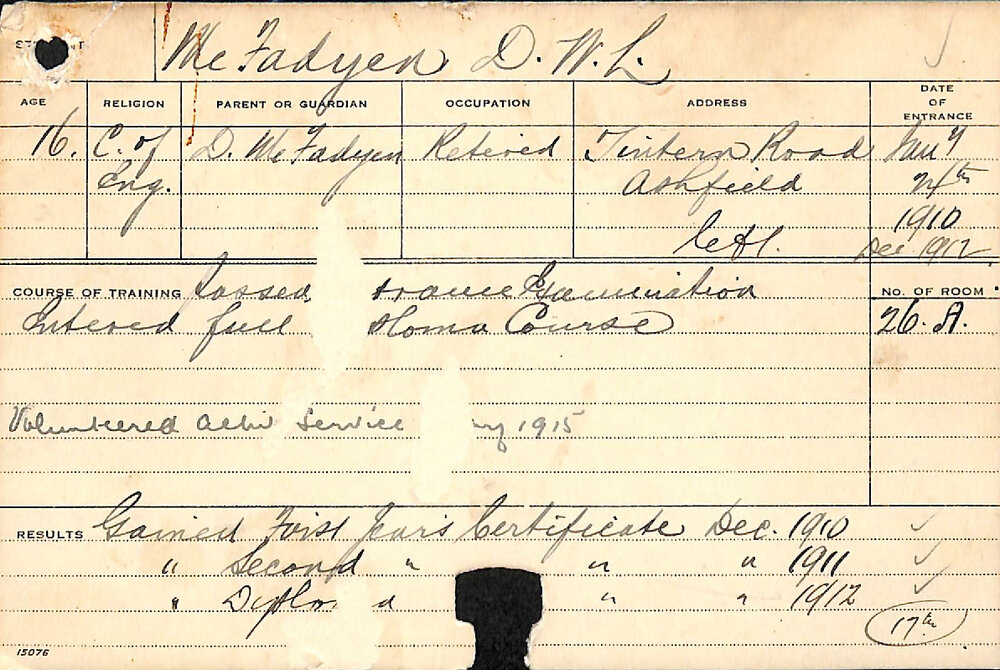 McFadyen D. W. L.
AGE RELIGION PARENT OR GUARDIAN OCCUPATION ADDRESS DATE OF ENTRANCE
16. C. of Eng. D. McFadyen Retired Tintern Road Ashfield Jany 24th 1910
Left. Dec 1912
COURSE OF TRAINING Passed trance Examination No. OF ROOM
Entered full ploma Course 26. A.
Volunteered Active Service 1915
RESULTS Gained First Year's Certificate Dec. 1910
" Second " " " 1911
" Diplo a " " 1912
17th
15076